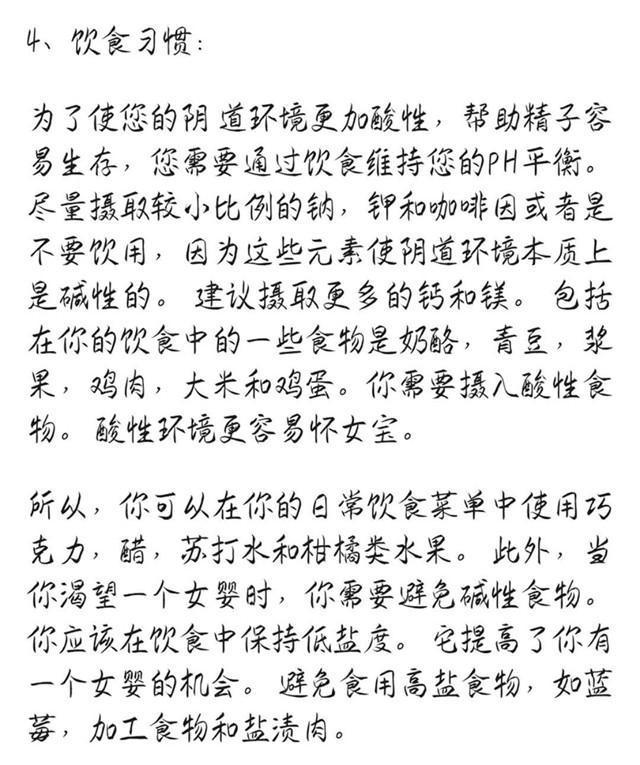 4、饮食习惯：
为了使您的阴道环境更加酸性，帮助精子容
易生存，您需要通过饮食维持您的PH平衡。
尽量摄取较小比例的钠，钾和咖啡因或者是
不要饮用，因为这些元素使阴道环境本质上
是碱性的。 建议摄取更多的钙和镁。 包括
在你的饮食中的一些食物是奶酪，青豆，浆
果，鸡肉，大米和鸡蛋。你需要摄入酸性食
物。 酸性环境更容易怀女宝。
所以，你可以在你的日常饮食菜单中使用巧
克力，醋，苏打水和柑橘类水果。 此外，当
你渴望一个女婴时，你需要避免碱性食物。
你应该在饮食中保持低盐度。 它提高了你有
一个女婴的机会。 避免食用高盐食物，如蓝
莓，加工食物和盐渍肉。